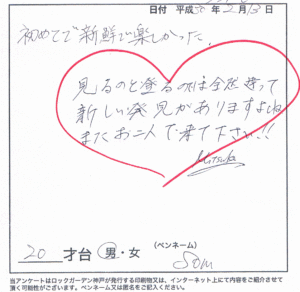 日付 平成30年2月13日
初めてで新鮮で楽しかった。
見るのと登るのは全然違って
新しい発見がありますよね
またお二人で来て下さい!!
Mitsuka
20 才台 男・女
(ペンネーム)
Som
当アンケートはロックガーデン神戸が発行する印刷物又は、インターネット上にて内容をご紹介させて
頂く可能性がございます。ペンネーム又は匿名をご記入ください。